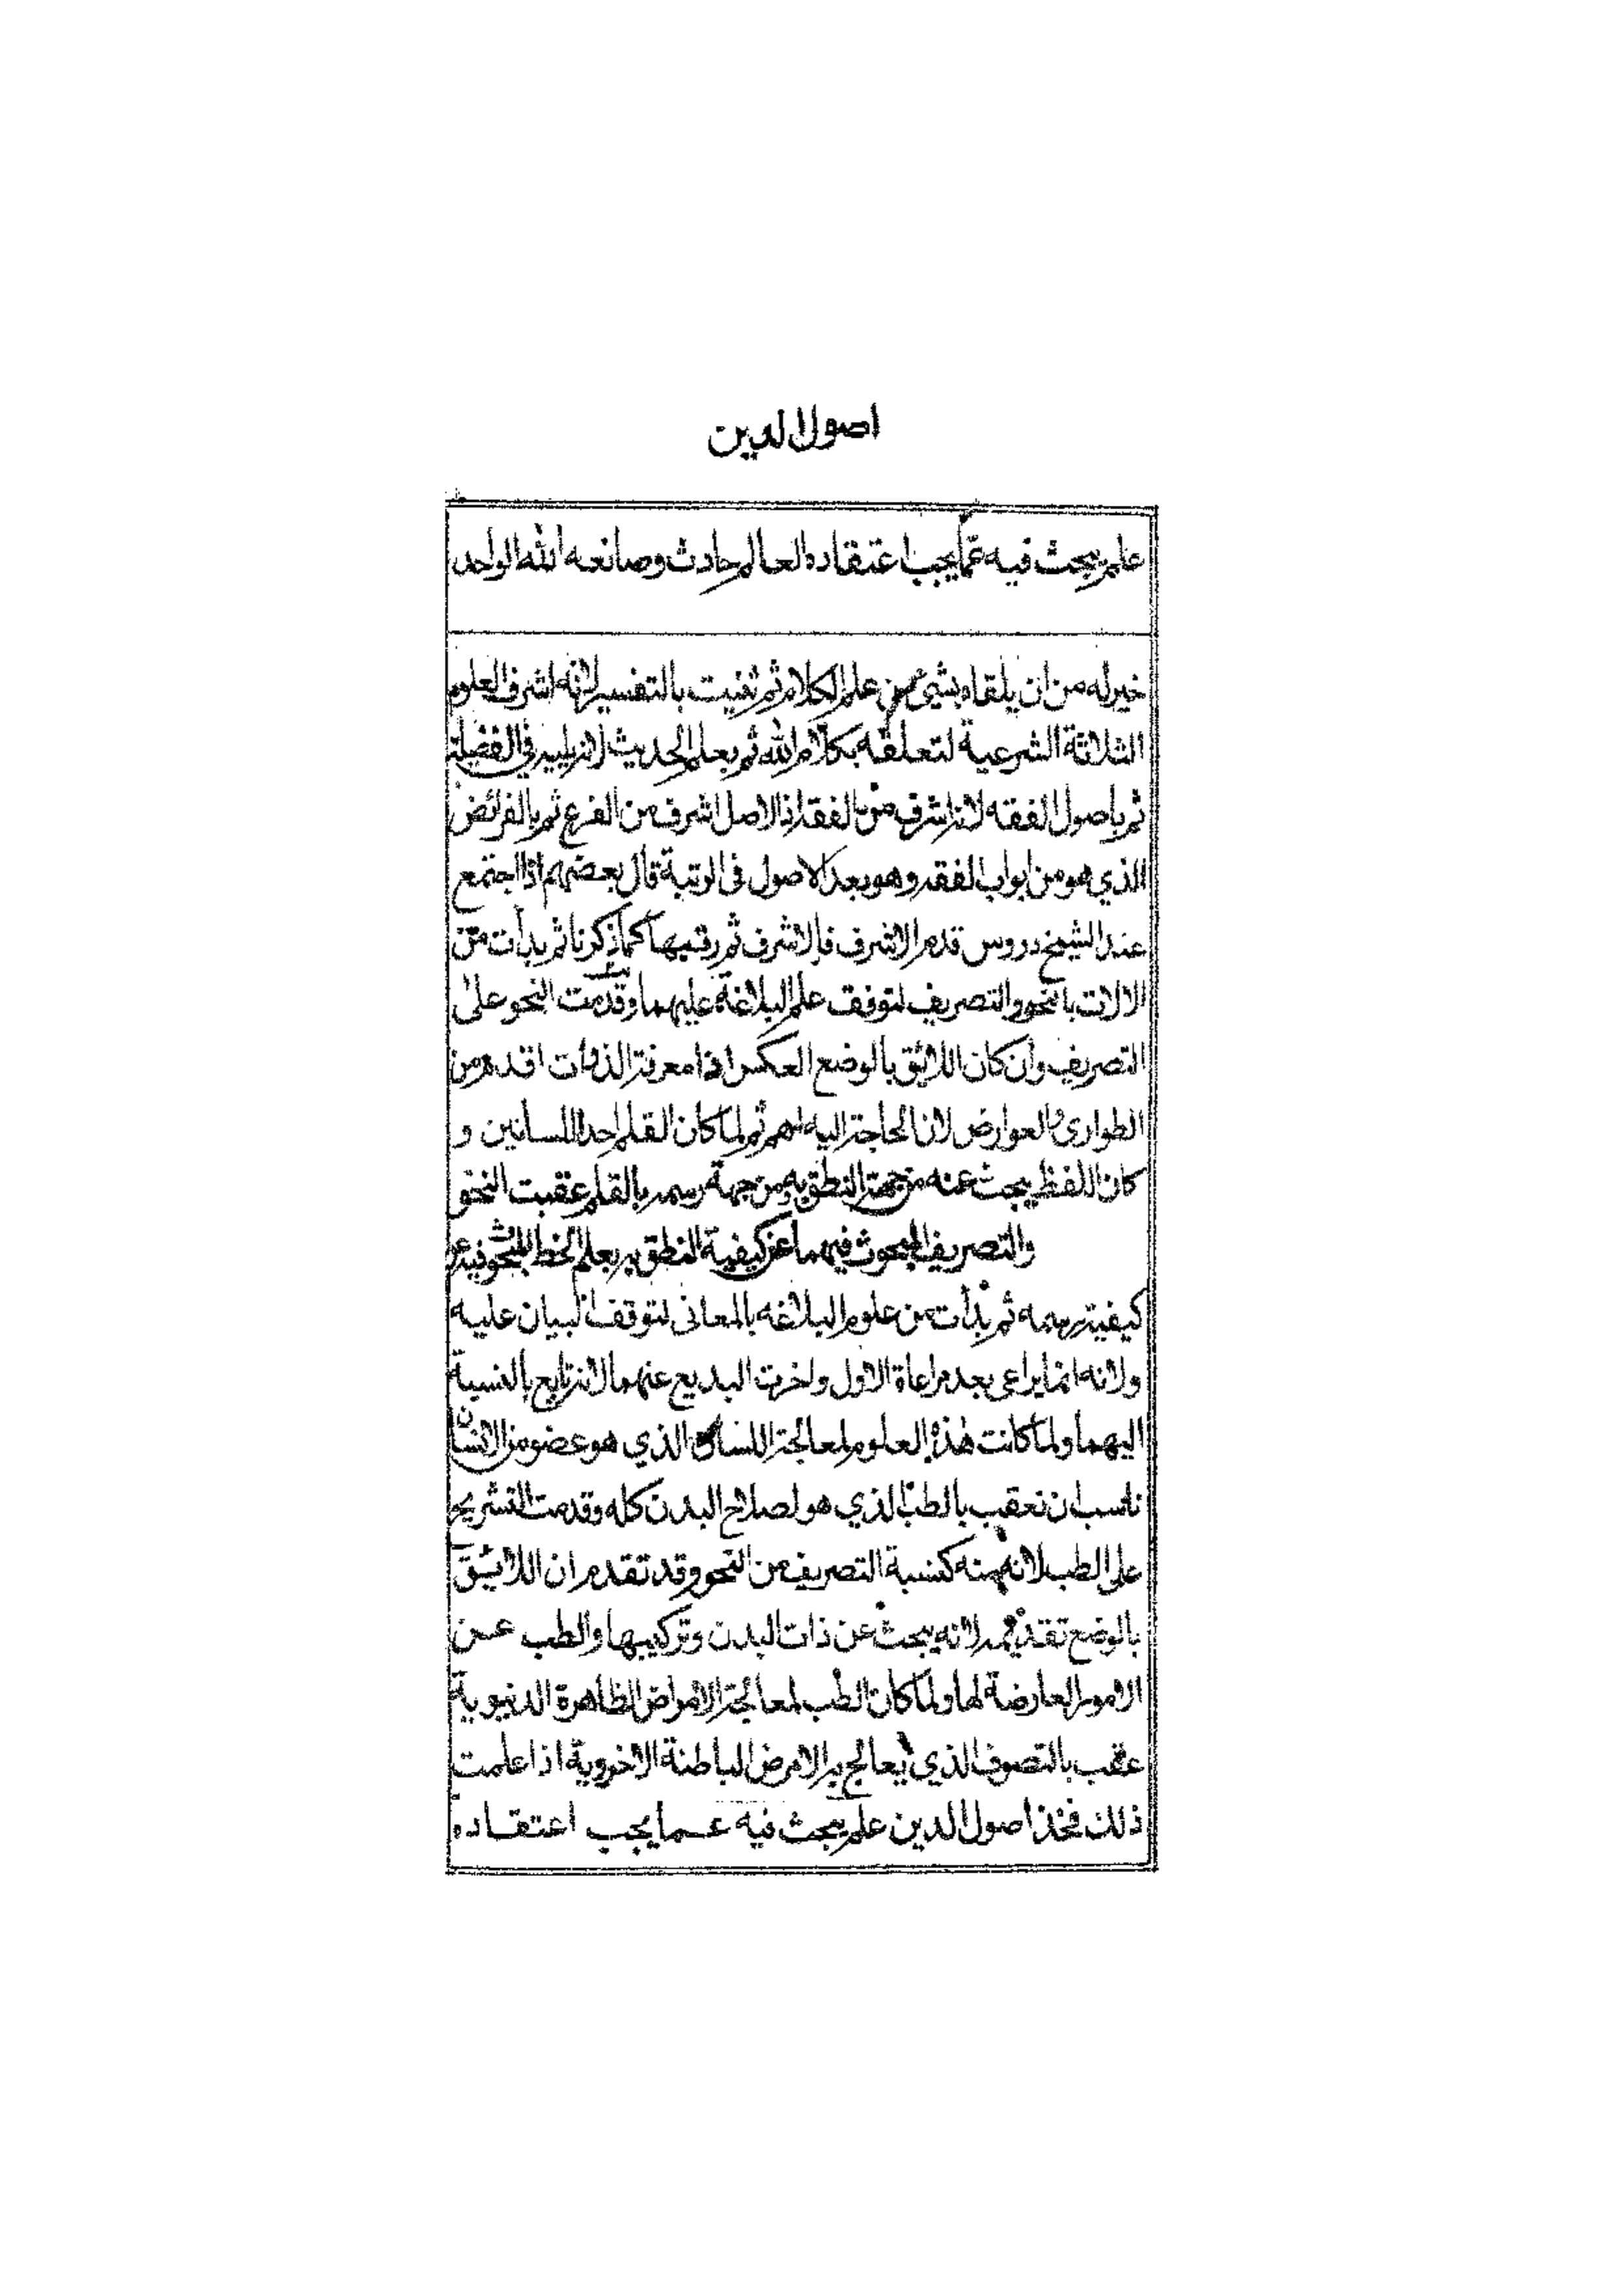 اصول الدين
علم يبحث فيه عما يجب اعتقاده العالم حادث وصانعه الله الواحد
خير له من ان يلقاه بشئ من علم الكلام ثم ثنيت بالتفسير لانه اشرف العلوم
الثلاثة الشرعية لتعلقه بكلام الله ثم بعلم الحديث لانه يليه في الفضيلة
ثم باصول الفقه لانه اشرف من الفقه اذ الاصل اشرف من الفرع ثم بالفرائض
الذي هو من ابواب الفقه وهو بعد الاصول فى الرتبة قال بعضهم اذا اجتمع
عند الشيخ دروس قدم الاشرف فالاشرف ثم رتبها كما ذكرنا ثم بدأت من
الالات بالنحو والتصريف لتوقف علم البلاغة عليهما وقدمت النحو على
التصريف وان كان اللائق بالوضع العكس اذ معرفة الذوات اقدم من
الطوارئ والعوارض لان الحاجة اليه اهم ثم لما كان القلم احد اللسانين و
كان اللفظ يبحث عنه من جهة النطق به ومن جهة رسمه بالقلم عقبت النحو
والتصريف المبحوث فيهما عن كيفية النطق به بعلم الخط المبحوث فيه عن
كيفية رسمه ثم بدأت من علوم البلاغه بالمعانى لتوقف البيان عليه
ولانه انما يراعى بعد مراعاة الاول واخرت البديع عنهما لانه تابع بالنسبة
اليهما ولما كانت هذه العلوم لمعالجة اللسان الذي هو عضو من الانسان
ناسب ان نعقب بالطب الذي هو لصلاح البدن كله وقدمت التشريح
على الطب لانه منه كنسبة التصريف من النحو وقد تقدم ان اللائق
بالوضع تقديمه لانه يبحث عن ذات البدن وتركيبها والطب عن
الامور العارضة لها ولما كان الطب لمعالجة الامراض الظاهرة الدنيوية
عقب بالتصوف الذي يعالج به الامرض الباطنة الاخروية اذا علمت
ذلك فخذ اصول الدين علم يبحث فيه عما يجب اعتقاده